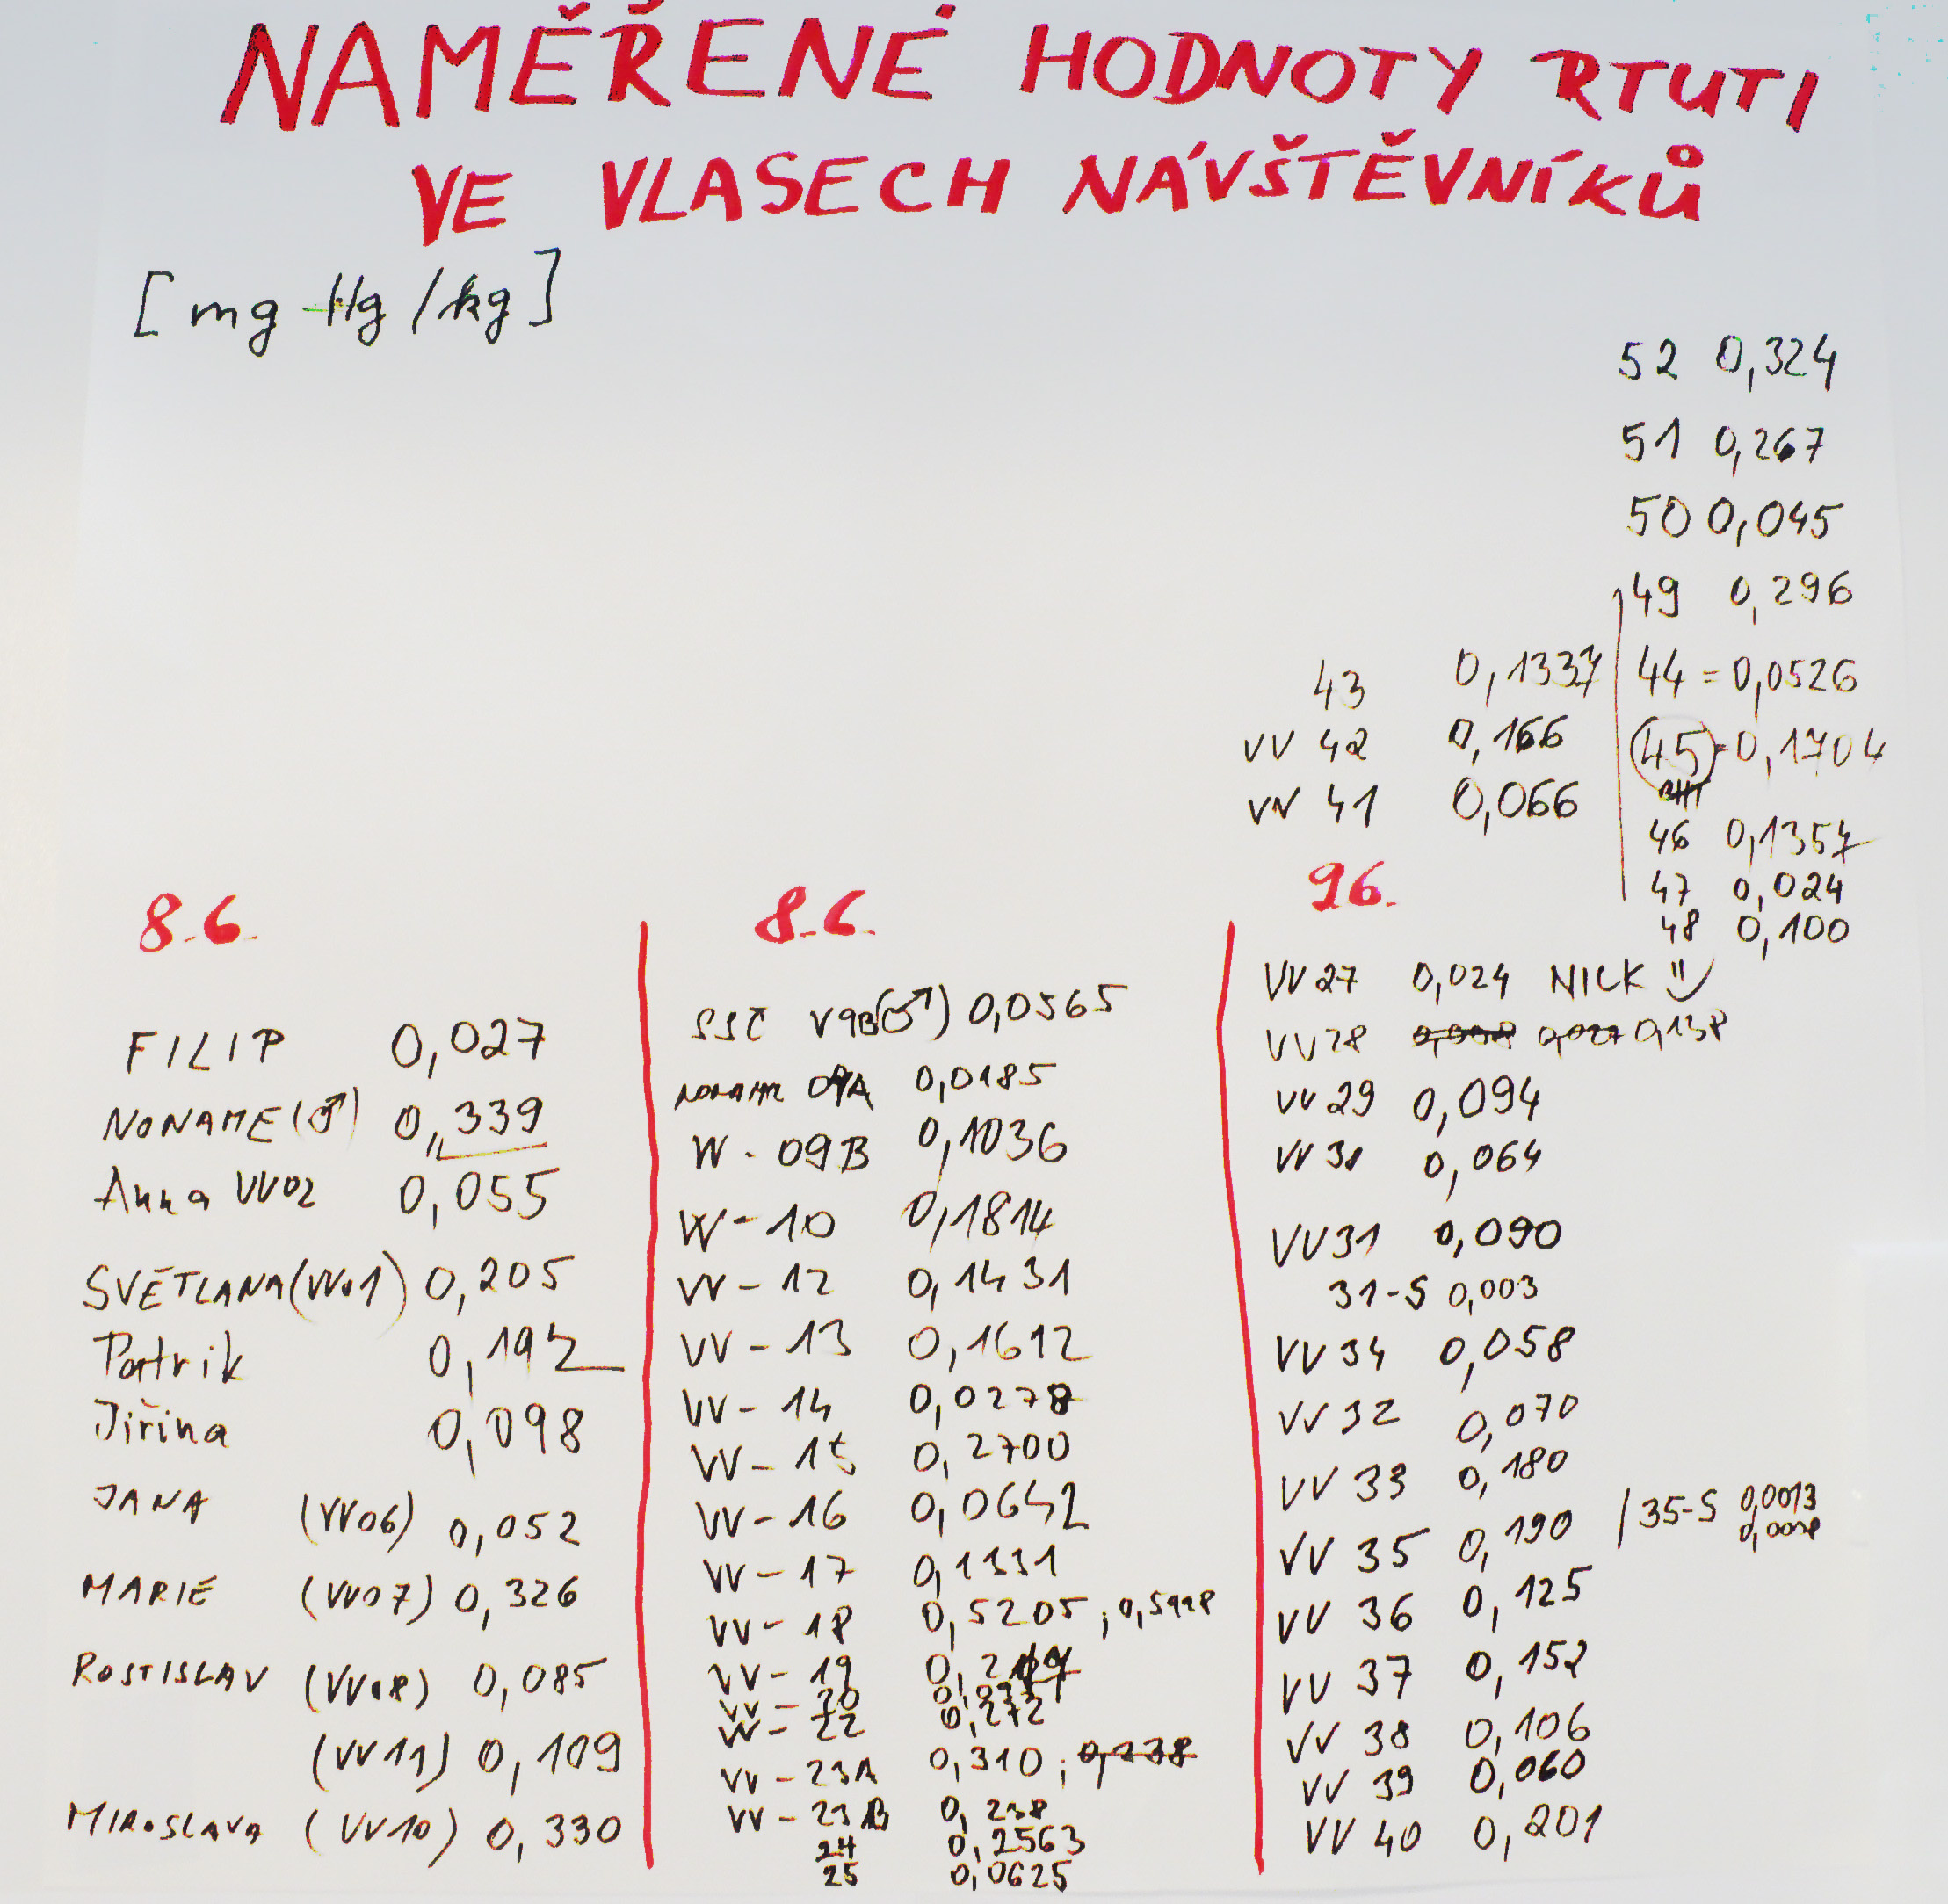 NAMĚŘENÉ HODNOTY RTUTI
VE VLASECH NÁVŠTĚVNÍKŮ
[mg Hg/kg]
8.6.
FILIP 0,027
NONAME (♂) 0,339
Anna VV02 0,055
SVĚTLANA (VV01) 0,205
Patrik 0,192
Jiřina 0,098
JANA (VV06) 0,052
MARIE (VV07) 0,326
ROSTISLAV (VV08) 0,085
(VV11) 0,109
MIROSLAVA (VV10) 0,330
8.6.
SSČ V9B(♂) 0,0565
NONAME 09A 0,0185
VV-09B 0,1036
VV-10 0,1814
VV-12 0,1431
VV-13 0,1612
VV-14 0,0278
VV-15 0,2700
VV-16 0,0642
VV-17 0,1331
VV-18 0,5205 ; 0,5928
VV-19
VV-20
VV-22 0,272
VV-23A 0,310 ; 0,238
VV-23B 0,238
24 0,2563
25 0,0625
43 0,1337
VV 42 0,166
VV 41 0,066
9.6.
VV27 0,024 NICK
VV28 0,027 0,138
VV29 0,094
VV 0,064
VV31 0,090
31-S 0,003
VV34 0,058
VV32 0,070
VV 33 0,180
VV 35 0,190 / 35-S 0,0013
VV 36 0,125
VV 37 0,152
VV 38 0,106
VV 39 0,060
VV 40 0,201
52 0,324
51 0,267
50 0,045
49 0,296
44 = 0,0526
45 = 0,1704
46 0,1357
47 0,024
48 0,100